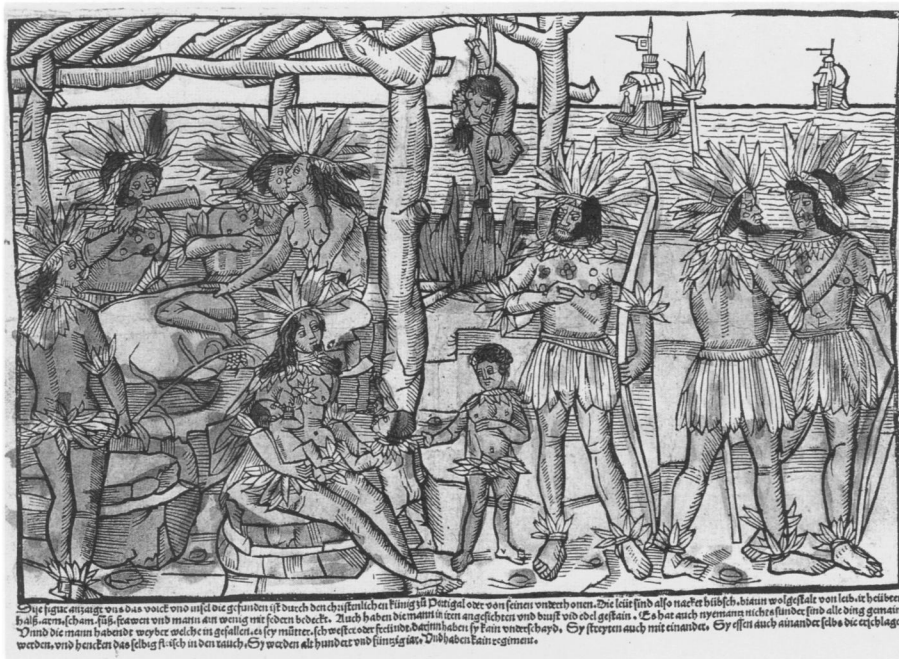 Dise figur anzaigt uns das volck und insel die gefunden ist durch den christenlichen künig zů Portigal oder von seinen underthonen. Die leüt sind also nacket hübsch. braun wolgestalt von leib. ir heübter
halß. arm. scham. füß. frawen und mann ain wenig mit federn bedeckt. Auch haben die mann in iren angesichten und brust vil edel gestain. Es hat auch nyemant nichts sunder sind alle ding gemain
Unnd die mann habendt weyber welche in gefallen. es sey mütter. schwester oder freündt. darjnn haben sy kain underschayd. Sy streyten auch mit einander. Sy essen auch ainander selbs die erschlagen
werden. und hencken das selbig fleisch in den rauch. Sy werden alt hundert und füntzig iar. Und haben kain regiment.